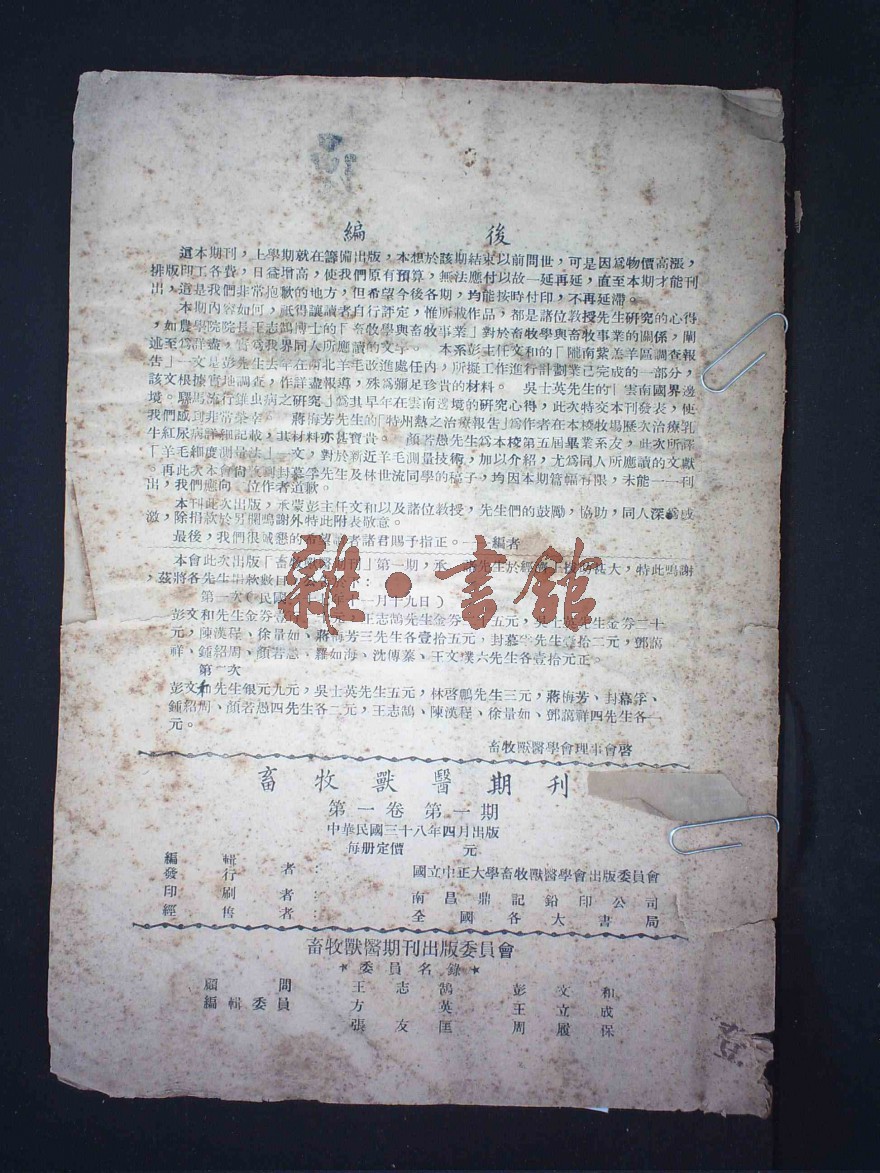 編後
這本期刊，上學期就在籌備出版，本想於該期結束以前問世，可是因爲物價高漲，
排版印工各費，日益增高，使我們原有預算，無法應付以故一延再延，直至本期才能刊
出，這是我們非常抱歉的地方，但希望今後各期，均能按時付印，不再延滯。
本期內容如何，祇得讓讀者自行評定，惟所載作品，都是諸位教授先生研究的心得
，如農學院院長王志鵠博士的「畜牧學與畜牧事業」對於畜牧學與畜牧事業的關係，闡
述至爲詳盡，實爲我界同人所應讀的文字。　本系彭主任文和的「隴南紫羔羊區調查報
告」一文是彭先生去年在西北羊毛改進處任內，所擬工作進行計劃業已完成的一部分，
該文根據實地調查，作詳盡報導，殊爲彌足珍貴的材料。　吳士英先生的「雲南國界邊
境。驛馬流行錐虫病之研究」爲其早年在雲南邊境的研究心得，此次特交本刊發表，使
我們感到非常榮幸。　蔣梅芳先生的「特州熱之治療報告」爲作者在本校牧場歷次治療乳
牛紅尿病詳細記載，其材料亦甚寶貴。　顏若愚先生爲本校第五屆畢業系友，此次所譯
「羊毛細度測量法」一文，對於新近羊毛測量技術，加以介紹，尤爲同人所應讀的文獻
。再此次本會尚收到封慕孚先生及林世流同學的稿子，均因本期篇幅有限，未能一一刊
出，我們應向二位作者道歉。
本刊此次出版，承蒙彭主任文和以及諸位教授，先生們的鼓勵，協助，同人深爲感
激，除捐款於另欄鳴謝外特此附表敬意。
最後，我們很誠懇的希望讀者諸君賜予指正。——編者
本會此次出版「畜牧獸醫期刊」第一期，承 諸先生於經濟上援助甚大，特此鳴謝
，茲將各先生捐款數目公佈於：
第一次（民國三十 年 一月十九日）
彭文和先生金券壹 王志鵠先生金券 十五元，吳士英先生金券二十
元，陳漢程、徐量如、蔣梅芳三先生各壹拾五元，封慕 先生壹拾二元，鄧藹
祥、鍾紹周、顏若愚、羅如海、沈傅綦、王文墣六先生各壹拾元正。
第二次
彭文和先生银元九元，吳士英先生五元，林啓鵬先生三元，蔣梅芳、封慕孚、
鍾紹周、顏若愚四先生各二元，王志鵠、陳漢程、徐量如、鄧藹祥四先生各一
元。
畜牧獸醫學會理事會啓
畜牧獸醫期刊
第一卷 第一期
中華民國三十八年四月出版
每册定價　　元
編輯
發行者：國立中正大學畜牧獸醫學會出版委員會
印刷者：南昌鼎記鉛印公司
經售者：全國各大書局
畜牧獸醫期刊出版委員會
★委員名錄★
顧問　王志鵠　彭文和
編輯委員　方英　王立成
張友匡　周履保
雜·書館